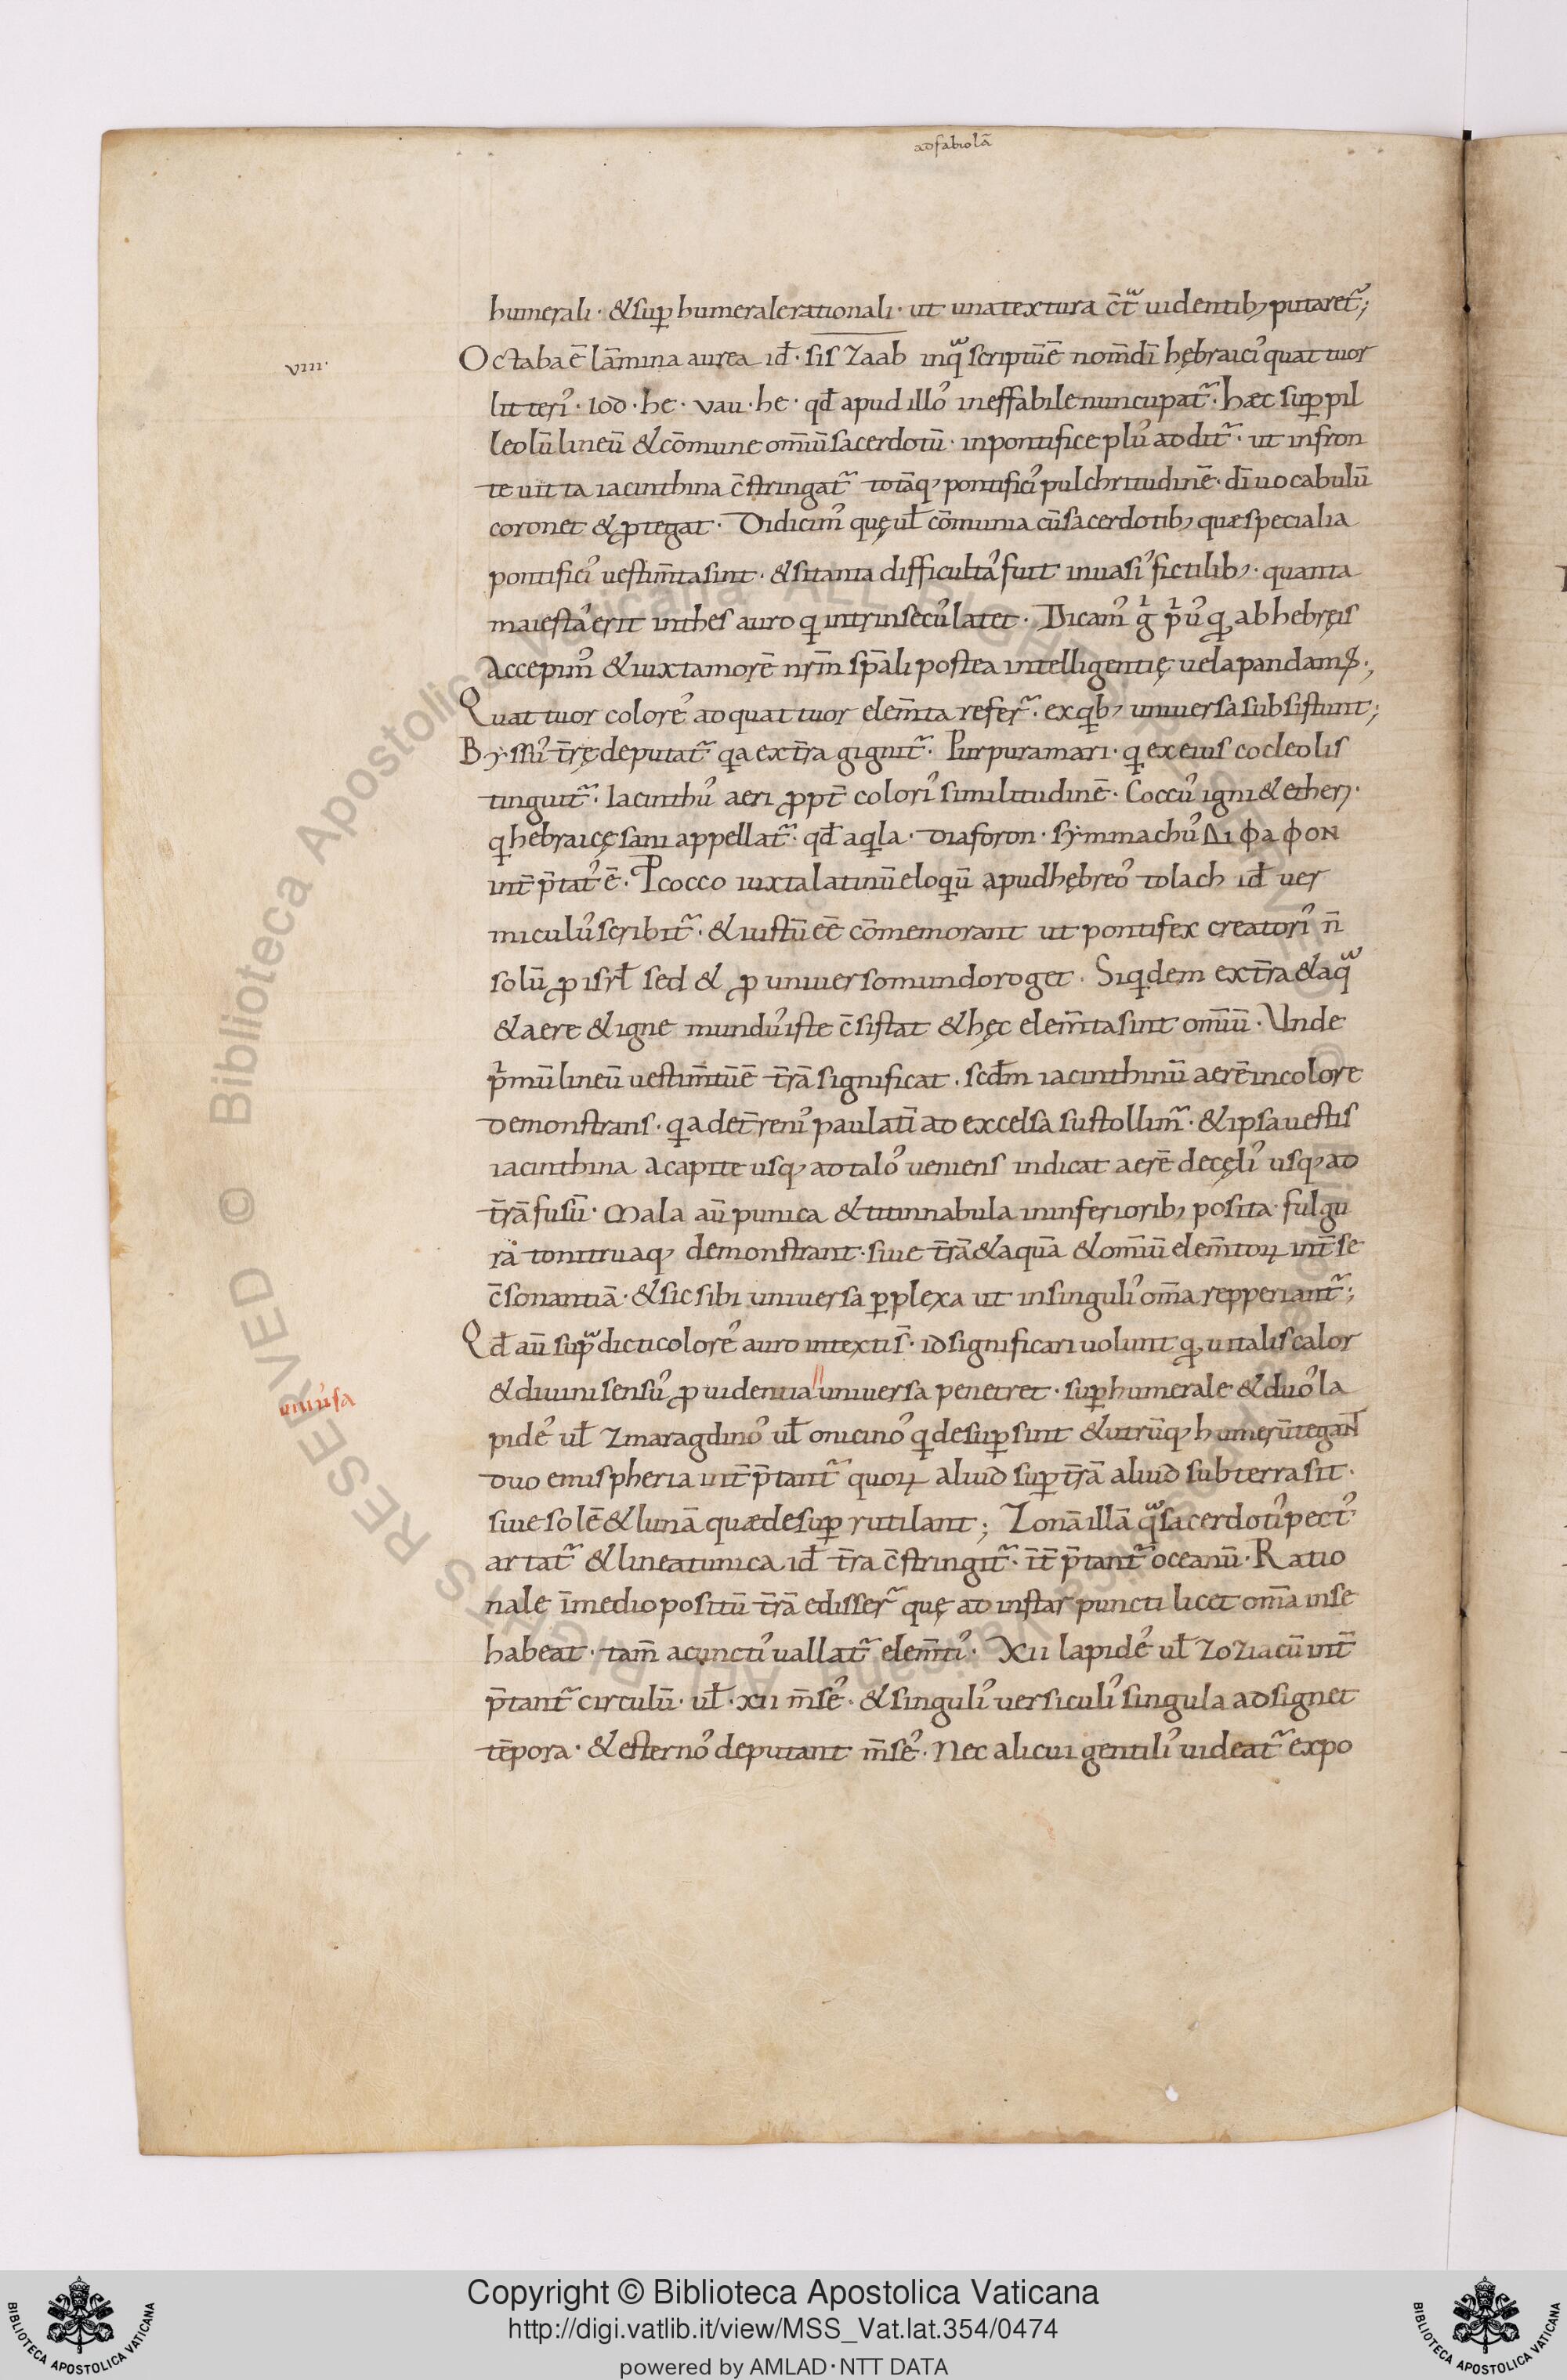 ad fabiolā
humerali · & suꝑ humerale rationali · ut una textura c̄tᷓ uidentibꝫ putaretᷣ;
viii·
Octaba ē lāmina aurea id̄ · sis zaab inqᷓ scriptū ē nom̄ dī hębraici᾽ quattuor
litteri᾽ · iod · he · vau · he · qd̄ apud illo᾽ ineffabile nuncupatᷣ · hæc suꝑ pil
leolū lineū & cōmune om̄iū sacerdotū · in pontifice plu᾽ additᷣ · ut in fron
te uitta iacinthina c̄stringatᷣ totāq᾽ pontifici᾽ pulchritudinē · dī uocabulū
coronet & ꝓtegat · Didicim᾽ quę ul̄ cōmunia cū sacerdotibꝫ quæ specialia
pontifici᾽ uestim̄ta sint · & si tanta difficulta᾽ fuit in uasi᾽ fictilib᾽ · quanta
maiesta᾽ erit in thesauro q intrinsecu᾽ latet · Dicam᾽ gͥ pͥu᾽ q ab hebręis
Accepim᾽ & iuxta morē nr̄m sp̄ali postea intelligentię uela pandam᾽;
Quattuor colore᾽ ad quattuor elem̄ta referᷣ · ex qb᾽ uniuersa subsistunt;
Byssu᾽ t̄rę deputatᷣ qa ex t̄ra gignitᷣ · Purpura mari · q ex eius cocleolis
tinguitᷣ · Iacinthu᾽ aeri ꝓpt̄ colori᾽ similitudinē · Coccu᾽ igni & etheri ·
q hebraicę sani appellatᷣ · qd̄ aqla · diaforon · symmachu᾽ ΔΙΦΑΦΟΝ
int̄p̄tat᾽ ē · P cocco iuxta latinū eloqū apud hębreo᾽ tolach id̄ uer
miculu᾽ scribitᷣ · & iustū eē cōmemorant ut pontifex creatori᾽ n̄
solū ꝓ isrl̄ sed & ꝓ uniuerso mundo roget · Siqdem ex t̄ra & aqᷓ
& aere & igne mundu᾽ iste c̄sistat & hęc elem̄ta sint om̄iū · Unde
pͥmū lineū uestim̄tū ē t̄rā significat · scd̄m iacinthinū aerē in colore
demonstrans · qa de t̄reni᾽ paulatī ad excelsa sustollimᷣ · & ipsa uestis
iacinthina a capite usq᾽ ad talo᾽ ueniens indicat aerē de cęli᾽ usq᾽ ad
t̄rā fusū · Mala aū punica & titinnabula in inferioribꝫ posita · fulgu
ra tonitruaq᾽ demonstrant · siue t̄rā & aquā & om̄iū elem̄toꝝ int̄ se
c̄sonantiā · & sic sibi uniuersa ꝑplexa ut in singuli᾽ om̄a repperiantᷣ;
Qd̄ aū supᷓdicti colore᾽ auro intexti s̄ · id significari uolunt q uitalis calor
& diuini sensu᾽ ꝓuidentia uniuersa penetret · suꝑhumerale & duo᾽ la
uniu᾽sa
pide᾽ ul̄ zmaragdino᾽ ul̄ onicino᾽ q desuꝑ sint & utrūq᾽ humerū tegant
duo emispheria int̄p̄tantᷣ quoꝝ aliud suꝑ t̄rā aliud sub terra sit ·
siue solē & lunā quæ desuꝑ rutilant; Zonā illā qᷓ sacerdoti᾽ pect᾽
artatᷣ & linea tunica id̄ t̄ra c̄stringitᷣ · īt̄p̄tantᷣ oceanū · Ratio
nale ī medio positū t̄rā edisserᷣ quę ad instar puncti licet om̄a in se
habeat · tam̄ a cuncti᾽ uallatᷣ elem̄ti᾽ · XII lapide᾽ ul̄ zoziacū int̄
p̄tantᷣ circulū · ul̄ · xii m̄se᾽ · & singuli᾽ uersiculi᾽ singula adsignet
tēpora · & esterno᾽ deputant m̄se᾽ · Nec alicui gentili᾽ uideatᷣ expo
© Biblioteca Apostolica Vaticana ALL RIGHTS RESERVED
Copyright © Biblioteca Apostolica Vaticana
http://digi.vatlib.it/view/MSS_Vat.lat.354/0474
powered by AMLAD·NTT DATA
BIBLIOTECA APOSTOLICA VATICANA
BIBLIOTECA APOSTOLICA VATICANA